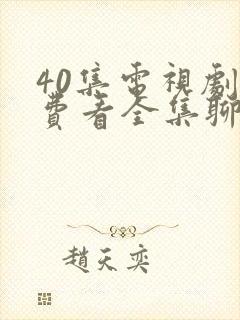 40集電視劇
費看全集聊
趙天奕